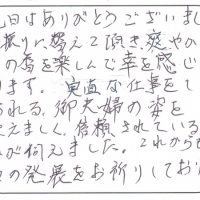 日はありがとうございまし
振りに替えて頂き、爽やか
の香を楽しんで幸を感じ
ます。実直な仕事をし
られる、御夫婦の姿を
えまし、信頼されている
が伺えました。これからも
の発展をお祈りしてお